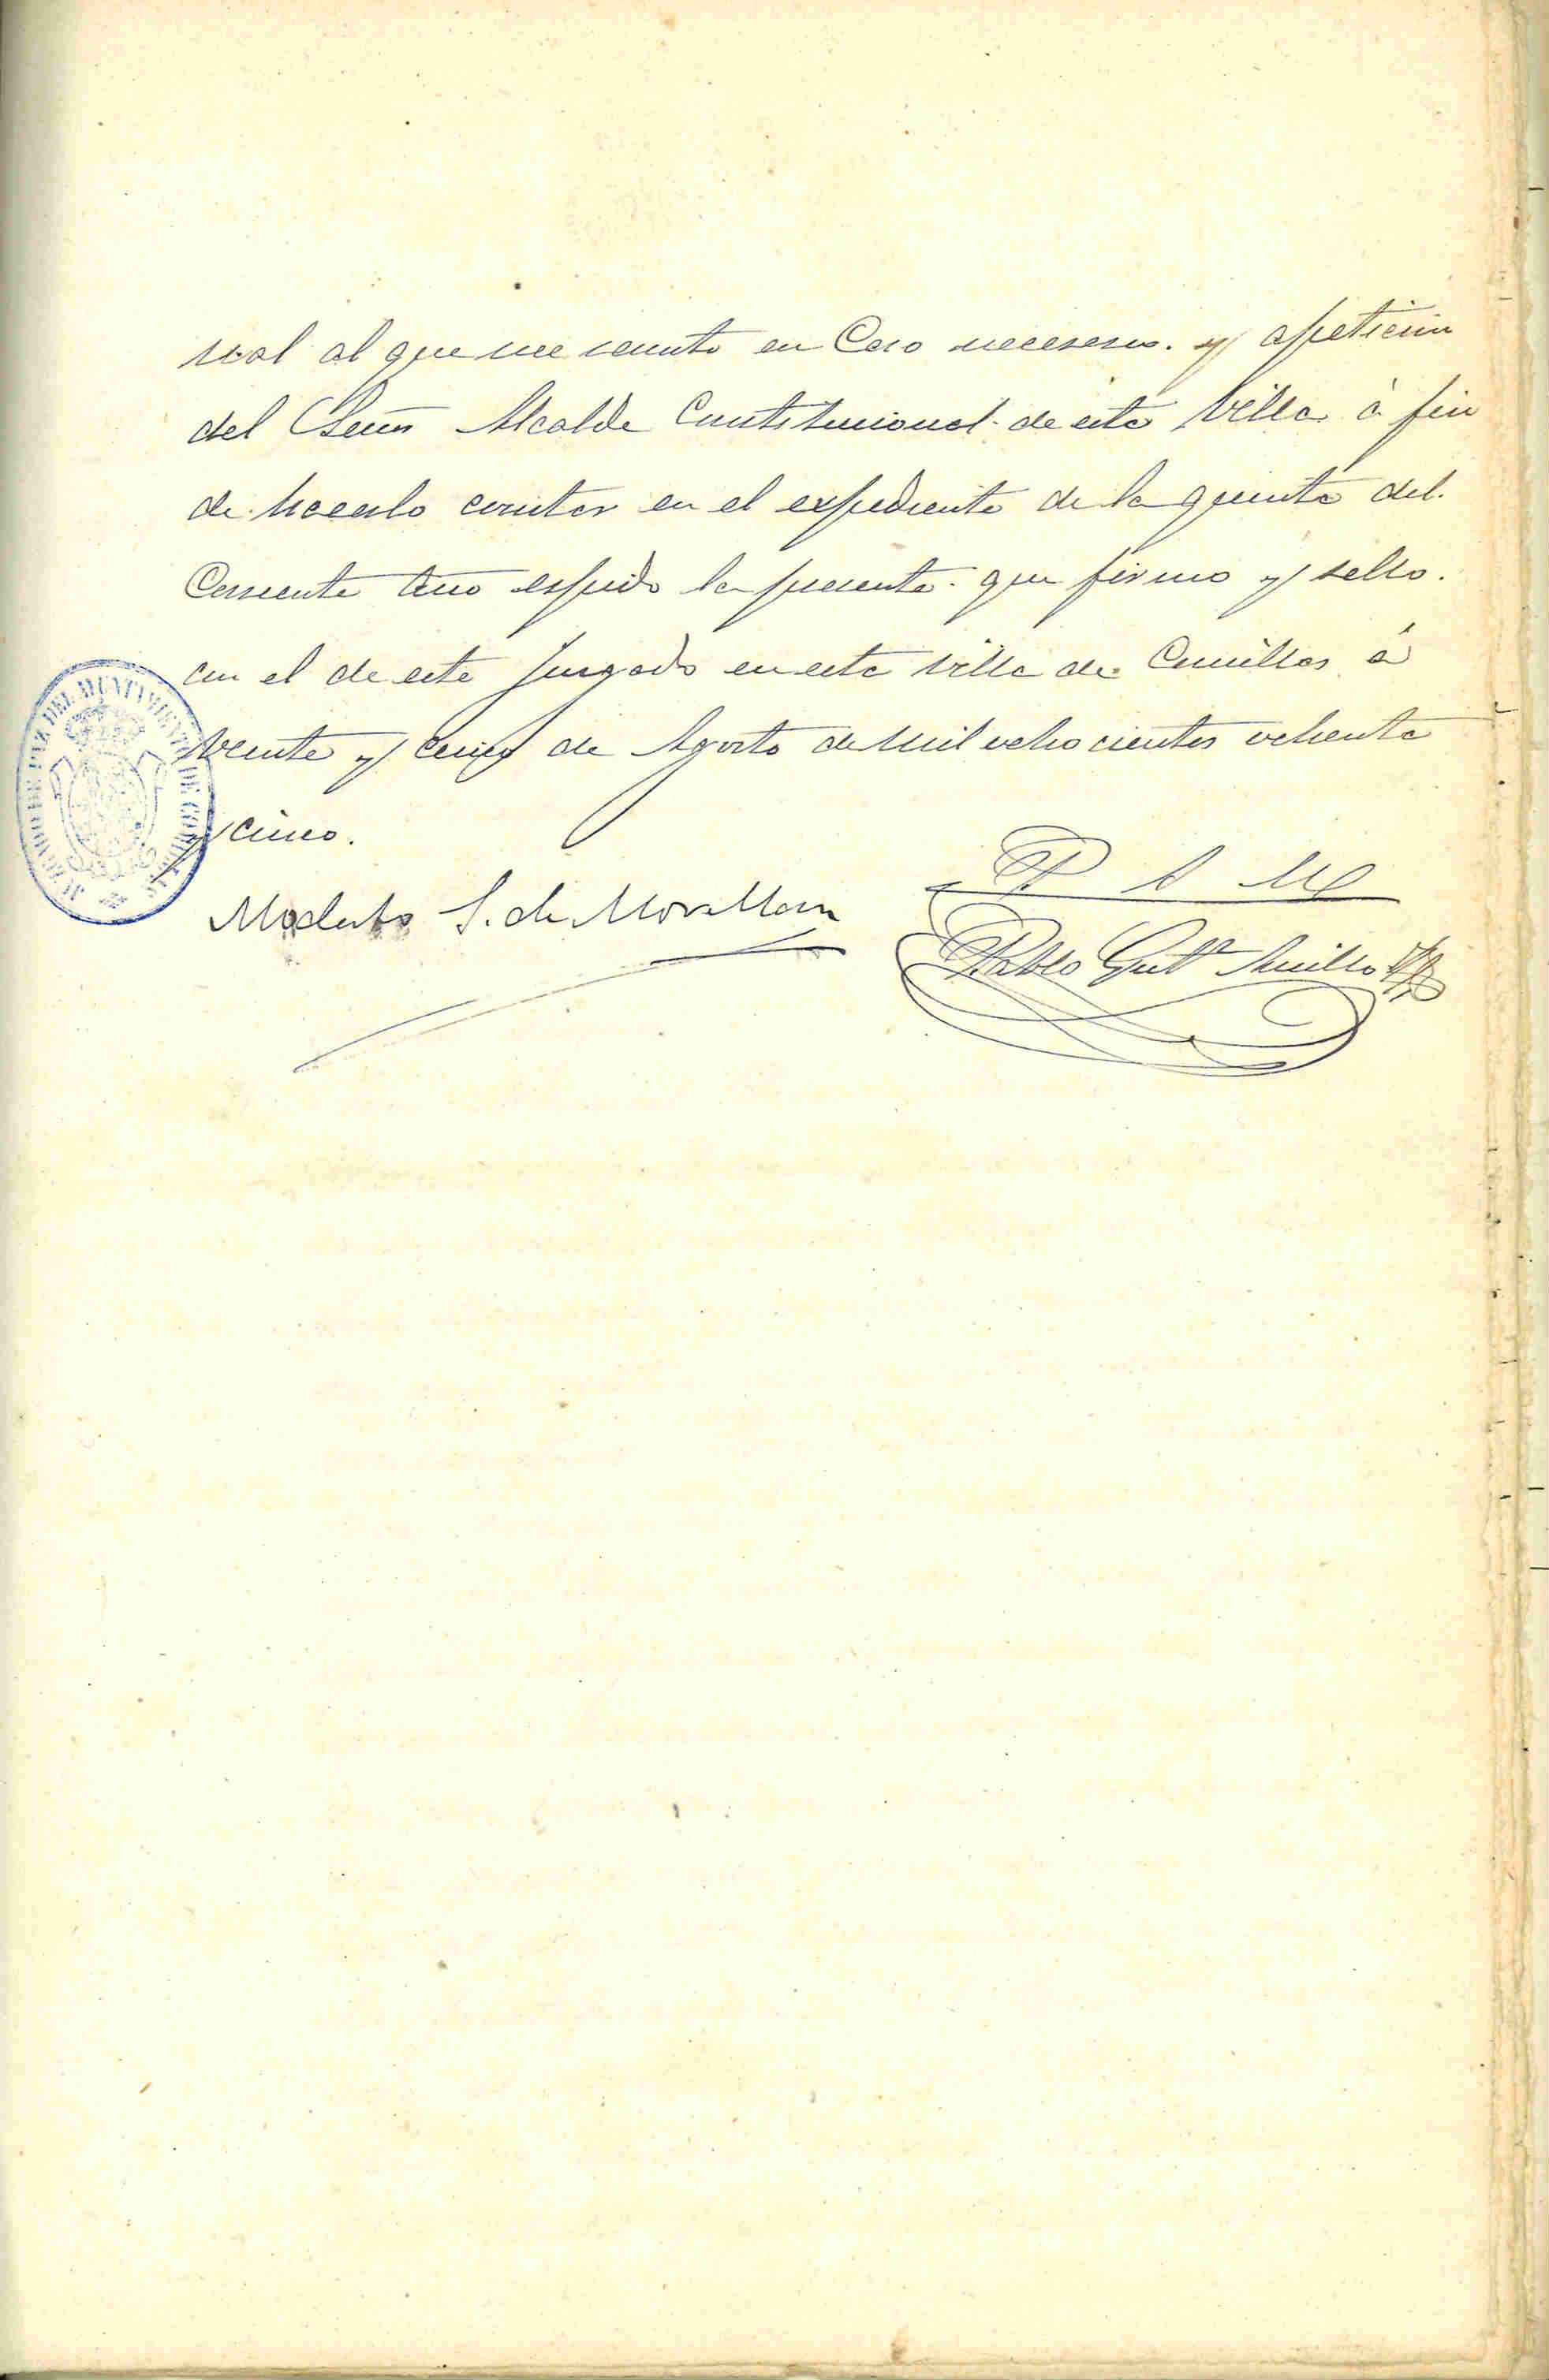 nal al que me remito en Caso necesario. y apeticion
del Señor Alcalde Constitucional de esta Villa á fin
de hacerlo constar en el expediente de la quinta del
Corriente Año espido la presente que firmo y sello
con el de este Juzgado en esta villa de Comillas á
veinte y cinco de Agosto de mil ochocientos ochenta
y cinco.
JUZGADO DE PAZ DEL AYUNTAMIENTO DE COMILLAS
Modesto S. de Movellan
P A M
Pablo Gutz